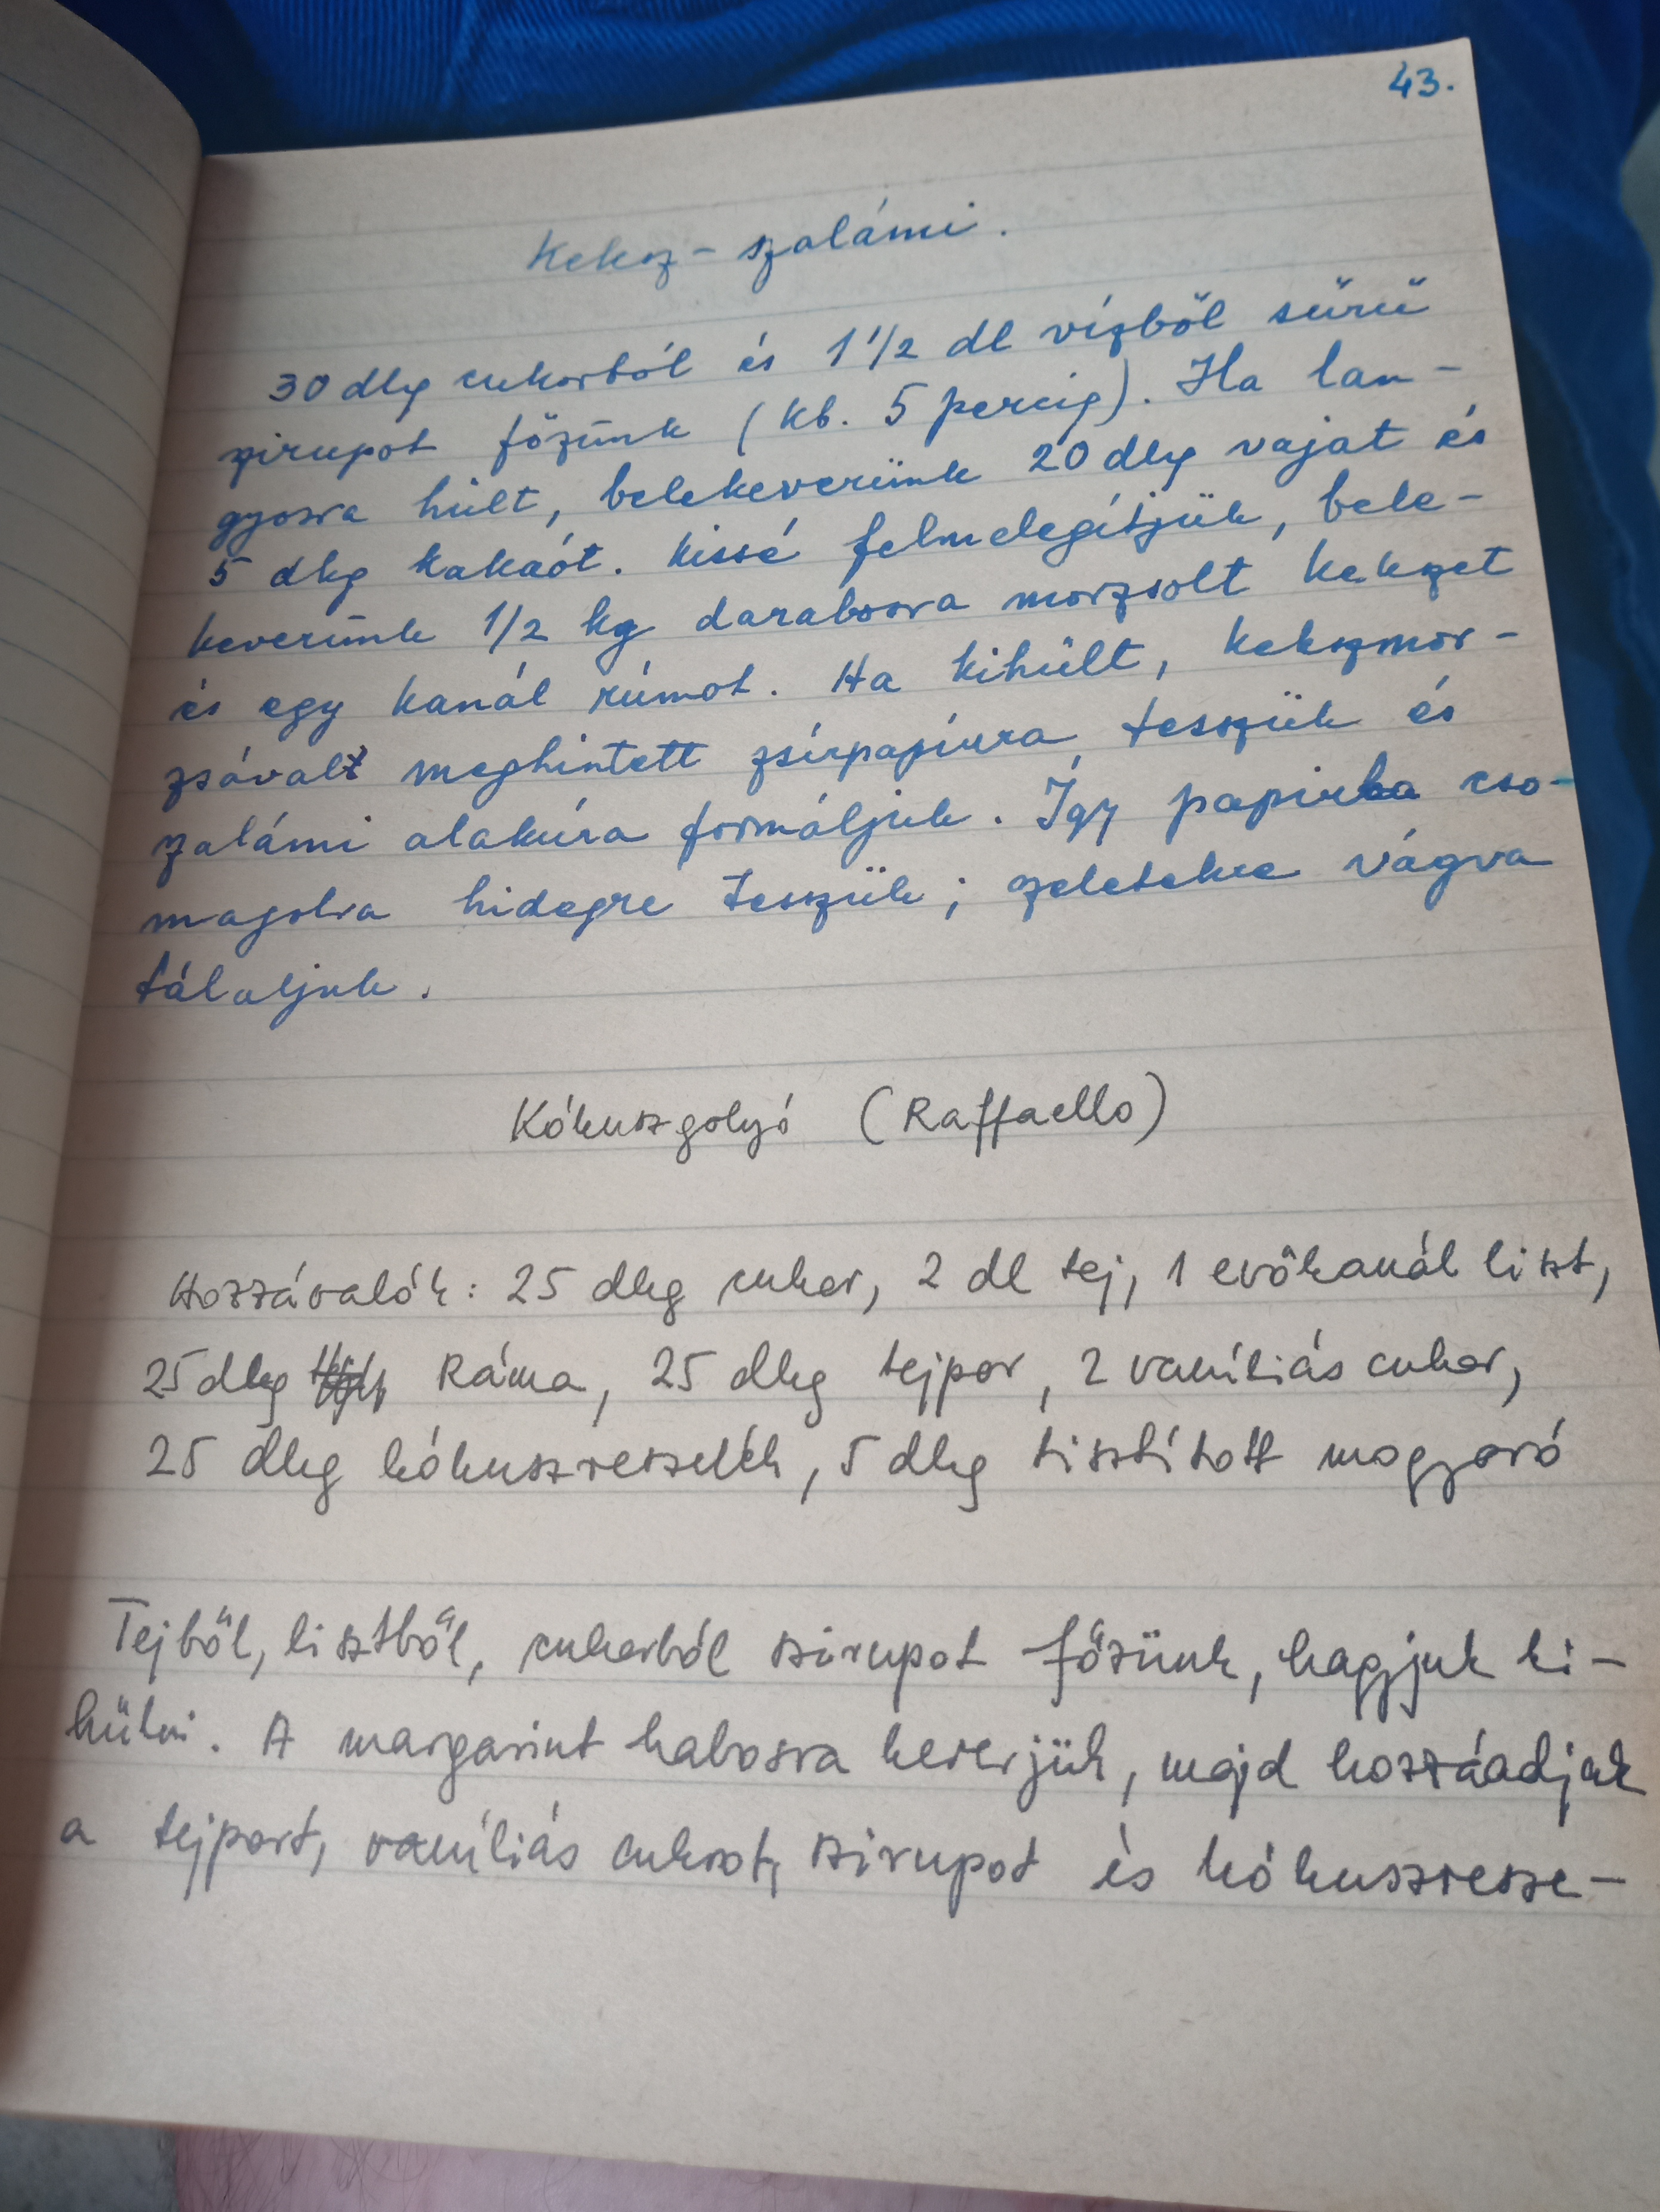 43.
Keksz-szalámi.
30 dkg cukorból és 1 1/2 dl vízből sűrű
szirupot főzünk (kb. 5 percig). Ha lan-
gyosra hült, belekeverünk 20 dkg vajat és
5 dkg kakaót. Kissé felmelegítjük, bele-
keverünk 1/2 kg darabosra morzsolt kekszet
és egy kanál rúmot. Ha kihült, kekszmor-
zsával meghintett zsírpapírra tesszük és
szalámi alakúra formáljuk. Így papirba cso-
magolva hidegre tesszük; szeletekre vágva
tálaljuk.
Kókuszgolyó (Raffaello)
Hozzávalók: 25 dkg cukor, 2 dl tej, 1 evőkanál liszt,
25 dkg Ráma, 25 dkg tejpor, 2 vaníliás cukor,
25 dkg kókuszreszelék, 5 dkg tisztított mogyoró
Tejből, lisztből, cukorból szirupot főzünk, hagyjuk ki-
hűlni. A margarint habosra keverjük, majd hozzáadjuk
a tejport, vaníliás cukrot, szirupot és kókuszresze-